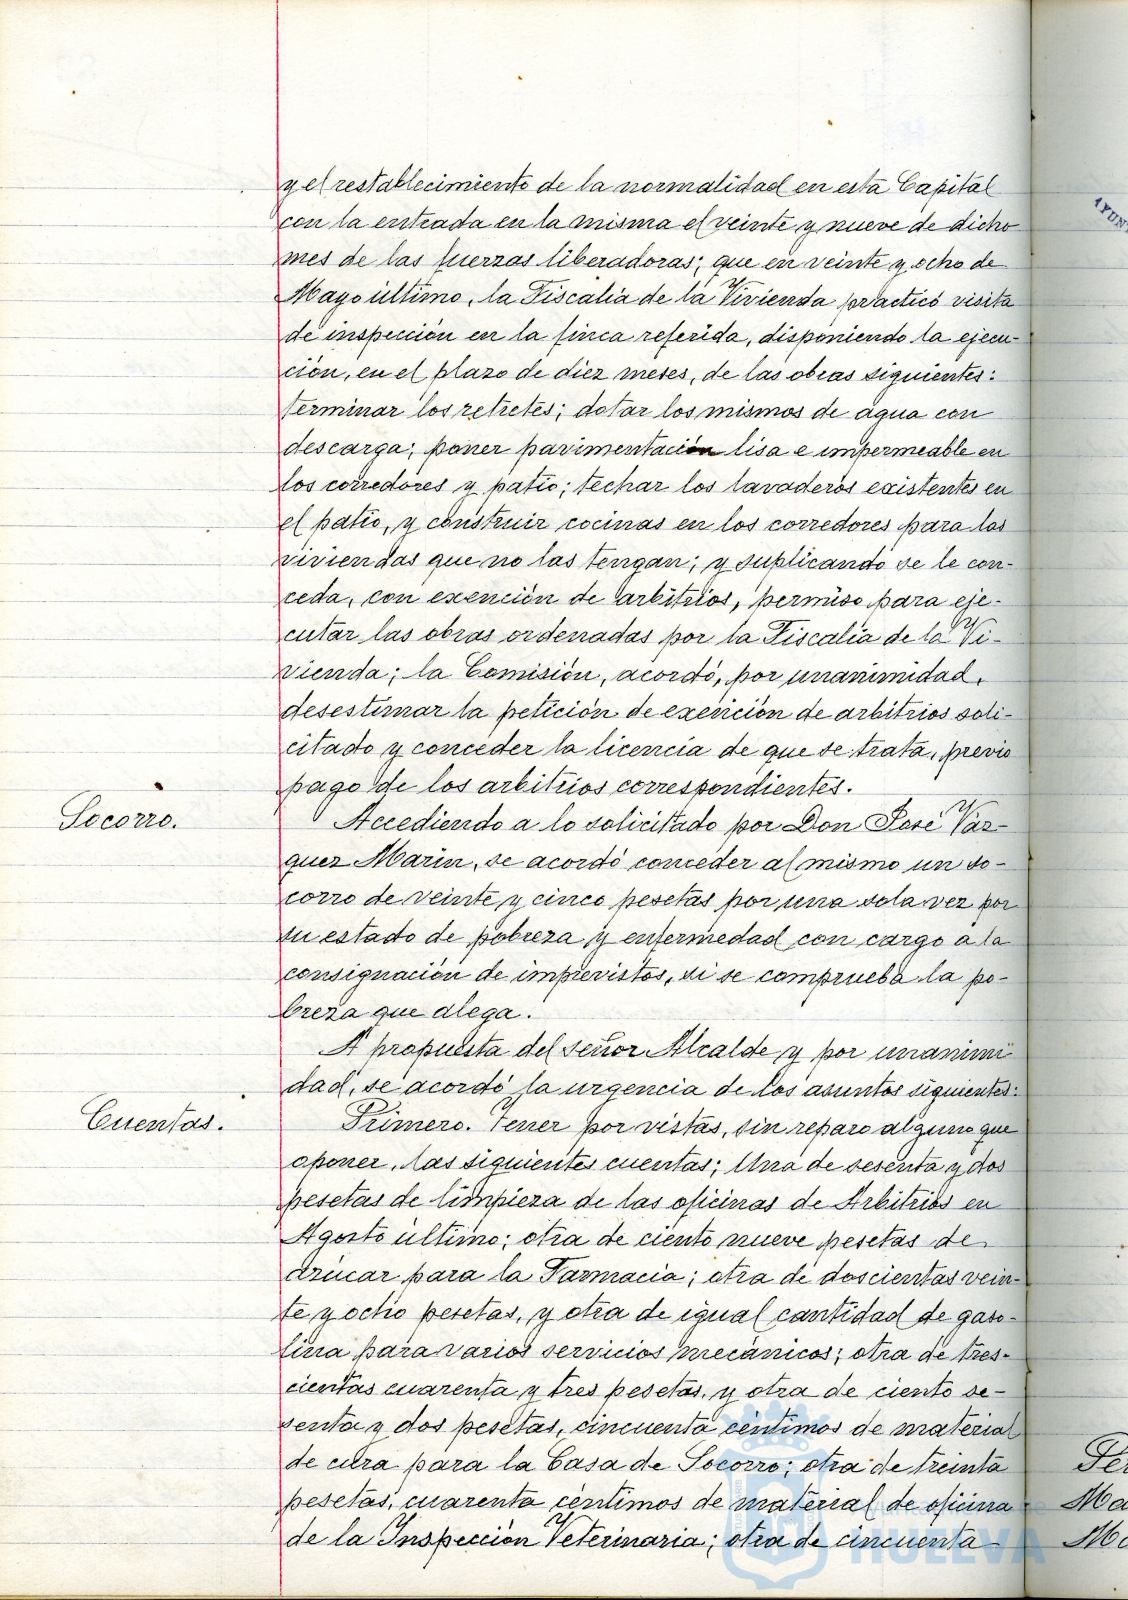 y el restablecimiento de la normalidad en esta Capital
con la entrada en la misma el veinte y nueve de dicho
mes de las fuerzas liberadoras; que en veinte y ocho de
Mayo último, la Fiscalía de la Vivienda practicó visita
de inspección en la finca referida, disponiendo la ejecu-
ción, en el plazo de diez meses, de las obras siguientes:
terminar los retretes; dotar los mismos de agua con
descarga; poner pavimentación lisa e impermeable en
los corredores y patio; techar los lavaderos existentes en
el patio, y construir cocinas en los corredores para las
viviendas que no las tengan; y suplicando se le con-
ceda, con exención de arbitrios, permiso para eje-
cutar las obras ordenadas por la Fiscalía de la Vi-
vienda; la Comisión, acordó, por unanimidad,
desestimar la petición de exención de arbitrios soli-
citado y conceder la licencia de que se trata, previo
pago de los arbitrios correspondientes.
Socorro.
Accediendo a lo solicitado por Don José Váz-
quez Marin, se acordó conceder al mismo un so-
corro de veinte y cinco pesetas por una sola vez por
su estado de pobreza y enfermedad con cargo a la
consignación de imprevistos, si se comprueba la po-
breza que alega.
A propuesta del señor Alcalde y por unanimi
dad, se acordó la urgencia de los asuntos siguientes:
Cuentas.
Primero. Tener por vistas, sin reparo alguno que
oponer, las siguientes cuentas; Una de sesenta y dos
pesetas de limpieza de las oficinas de Arbitrios en
Agosto último; otra de ciento nueve pesetas de
azúcar para la Farmacia; otra de doscientas vein-
te y ocho pesetas, y otra de igual cantidad de gaso-
lina para varios servicios mecánicos; otra de tres-
cientas cuarenta y tres pesetas, y otra de ciento se-
senta y dos pesetas, cincuenta céntimos de material
de cura para la Casa de Socorro; otra de treinta
pesetas, cuarenta céntimos de material de oficina
de la Inspección Veterinaria; otra de cincuenta
HUELVA